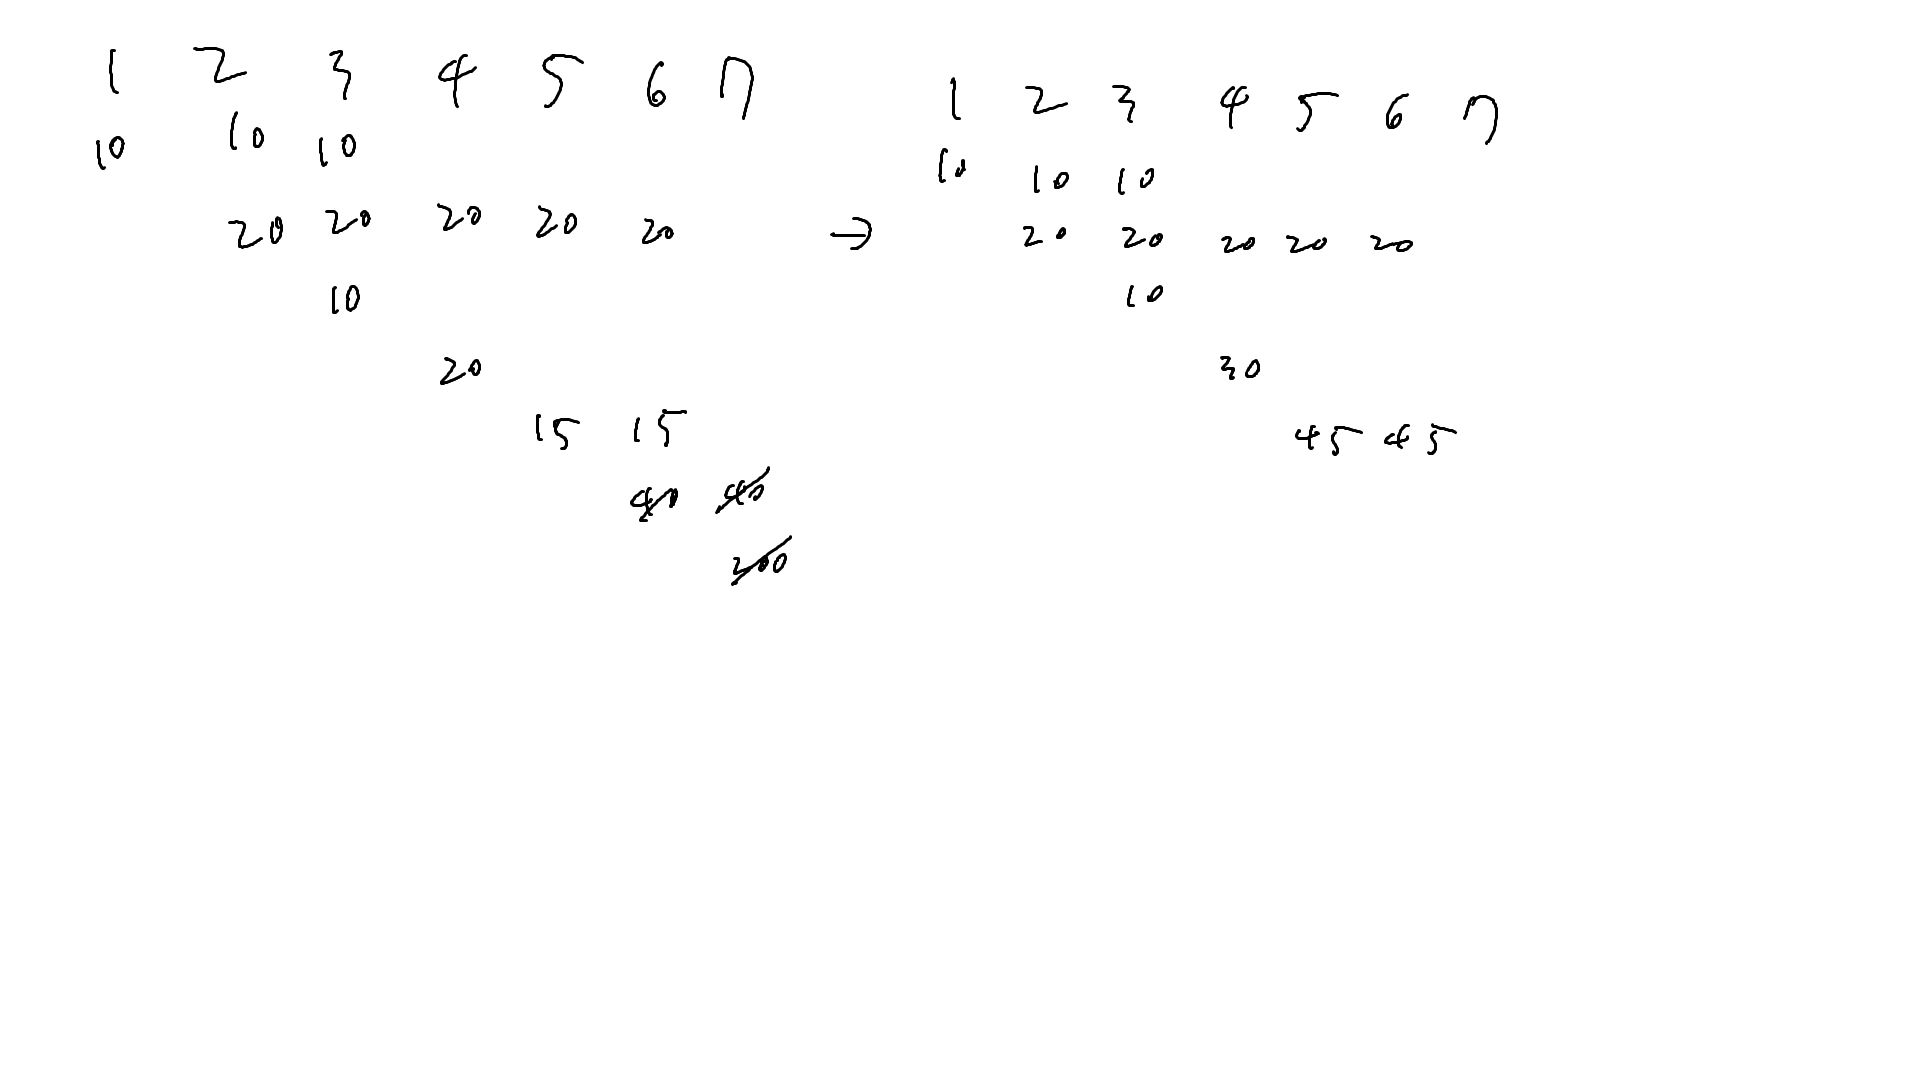 1 2 3 4 5 6 7
10 10 10
20 20 20 20 20
10
20
15 15
40 40
200
→
1 2 3 4 5 6 7
10 10 10
20 20 20 20 20
10
30
45 45